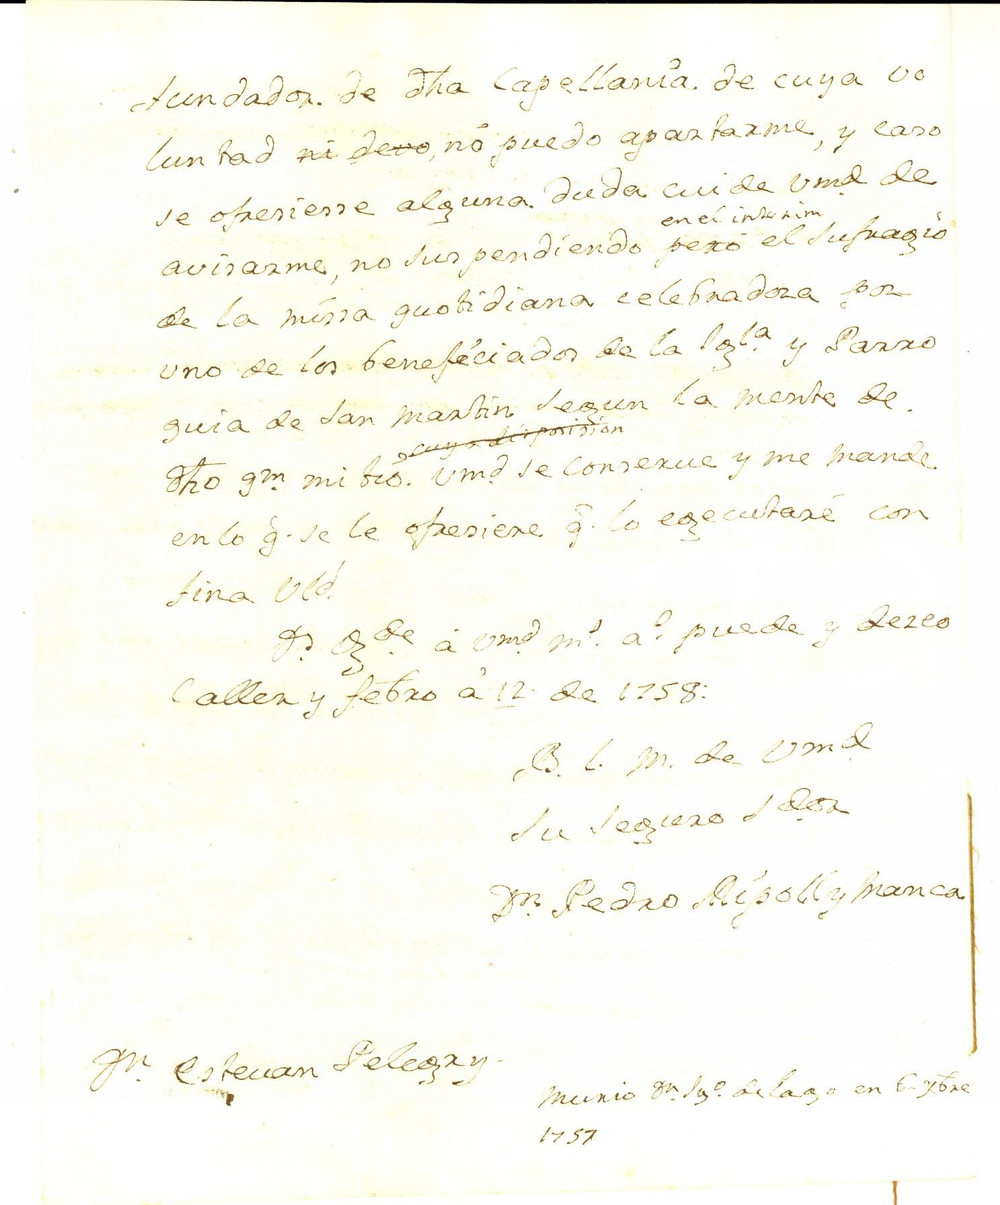 fundador. de dha Capellania. de cuya vo
luntad ni devo, no puedo apartarme, y caso
se ofresiesse alguna duda cuide Vmd de
en el interim
avisarme, no suspendiendo pero el sufragio
de la missa quotidiana celebradora por
uno de los beneficiados de la Igla y Parro
quia de San Martin segun la mente de.
cuya disposision
dho qm mi tio. Vmd se conserve y me mande
en lo q. se le ofresiere q. lo egecutaré con
fina Vld.
Ds gde à Vmd ms. as. puede y deseo
Caller y febro à 12 de 1758:
B. L. M. de Vmd
su seguro Sdor
Dn. Pedro Ripoll y Manca
Dn. Estevan Pelegry.
Murio Dn. de en 6 xbre
1757